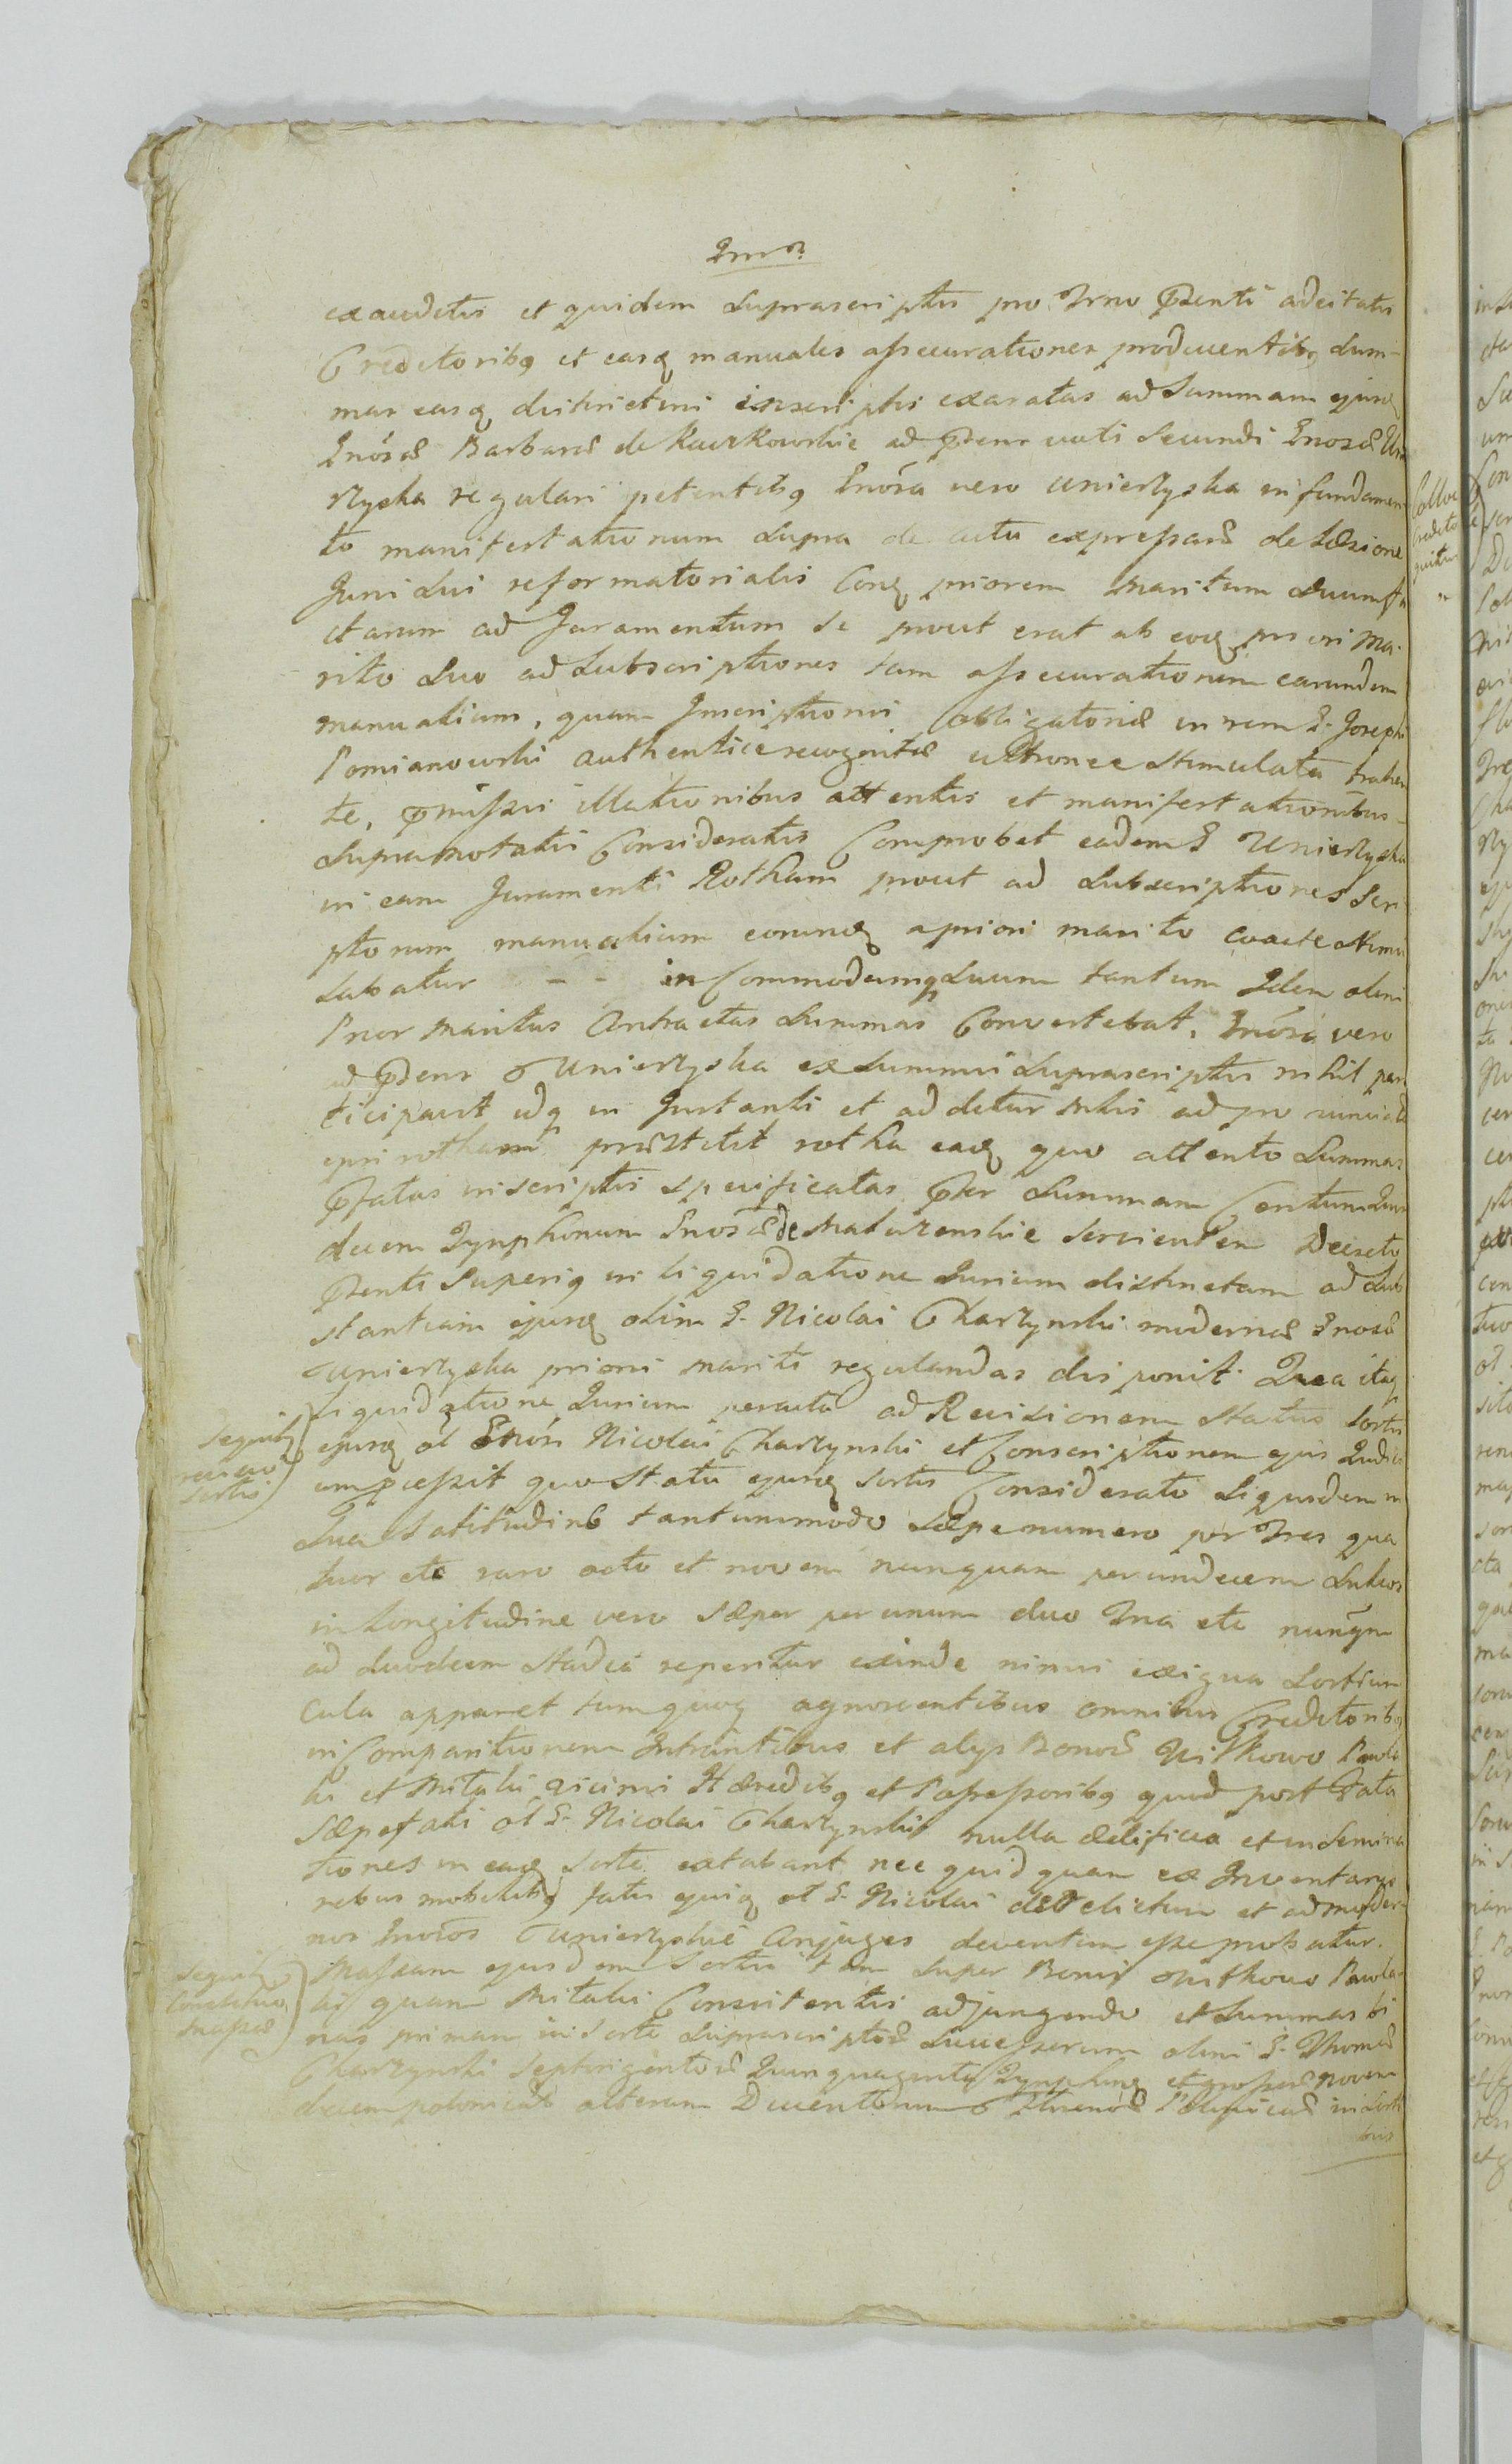 exaudetis et quidem suprascriptis pro Trno pdenti adcitatis
Creditoribq et easq manuales assecurationes producentibq Sum-
mas easq districtim inscriptis exaratas ad Summam ejusq
Gnosae Barbarae de Kuczkowskie ad pdens voti secundi Gnosae Unie
rzyska regulari petentibq Gnosa vero Unierzyska in fundamen
to manifestationum supra de actu expressarũ de Laesione
Juris sui reformatorialis Conq priorem maritum suum fa
ctarum ad Juramentum se prout erat ab eoq priori Ma-
rito suo ad subscriptiones tam assecurationem earundem
manualium, quam Inscriptionis obligatoriae in rem G. Josephi
Pomianowski authentice recognitae ultronee stimulata trahen
te, pmissis illationibus attentis et manifestationibus
supranotatis Consideratis Comprobet eadem G Unierzyska
in eam Juramenti Rotham prout ad subscriptiones scri
ptorum manualium eorumq a priori marito coacte stimu
labatur - - in Commodumq suum tantum Idem olim
Prior maritus Contractas summas Convertebat, Gnosa vero
ad pdens Unierzyska ex summis suprascriptis nihil par
ticipavit idq in Instanti et addetur
ipsi rotham praestitit rotha eaq quo attento Summas
pfatas inscriptis specificatas pter Summam Centum duo
decem Tynphonum Gnosae de servientem Decreto
pdenti superiq in liquidatione Jurium distinctam ad sub
stantiam ejusq olim G. Nicolai Charzynski modernae Gnosae
Unierzyska prioris mariti regulandas disponit. Qua itaq
Liquidatione Jurium peracta ad Revisionem status sortis
ejusq ol Gnosi Nicolai Charzynski et Conscriptionem ejus Judici
um pcessit quo statu ejusq sortis Considerato siquidem in
sua Latitudine tantummodo saepenumero per Tres qua
tuor etc raro octo et novem nunquam per undecem sulcos
in Longitudine vero saeper per unum duo Tria etc nunqm
ad duodecem stadia reperitur exinde nimis exigua sortium
cula apparet tumquoq agnoscentibus omnibus Creditoribq
in Comparitionem Intrantibus et alys Bonorũ Witkowo Pawla
ki et Mitaki vicini Haeredibq et Possessoribq quod post Fata
saepefati ol G. Nicolai Charzynski nulla aedificia et insemina
tiones in eaq sorte extabant nec quidquam ex Inventarys
rebus mobilibq fatis ejusq ol G. Nicolai derelictum et ad moder-
nos Gnosos Unierzyskie Conjuges deventum esse probatur.
Massam ejusdem Sortis tam super Bonis Witkowo Pawla-
ki quam Mitaki Consistentis adjungendo et Summas bi
nas primam in sorte suprascriptorũ Successorum olim G. Thomae
Charzynski septingentorũ Quinquaginta Tynphonq et grossorũ novem
decem polonicaliũ alteram Ducentorum Florenorũ Polonicaliũ in sorti
bus
Sequitq
revisio
sortis
Sequitq
Constitutio
Massae